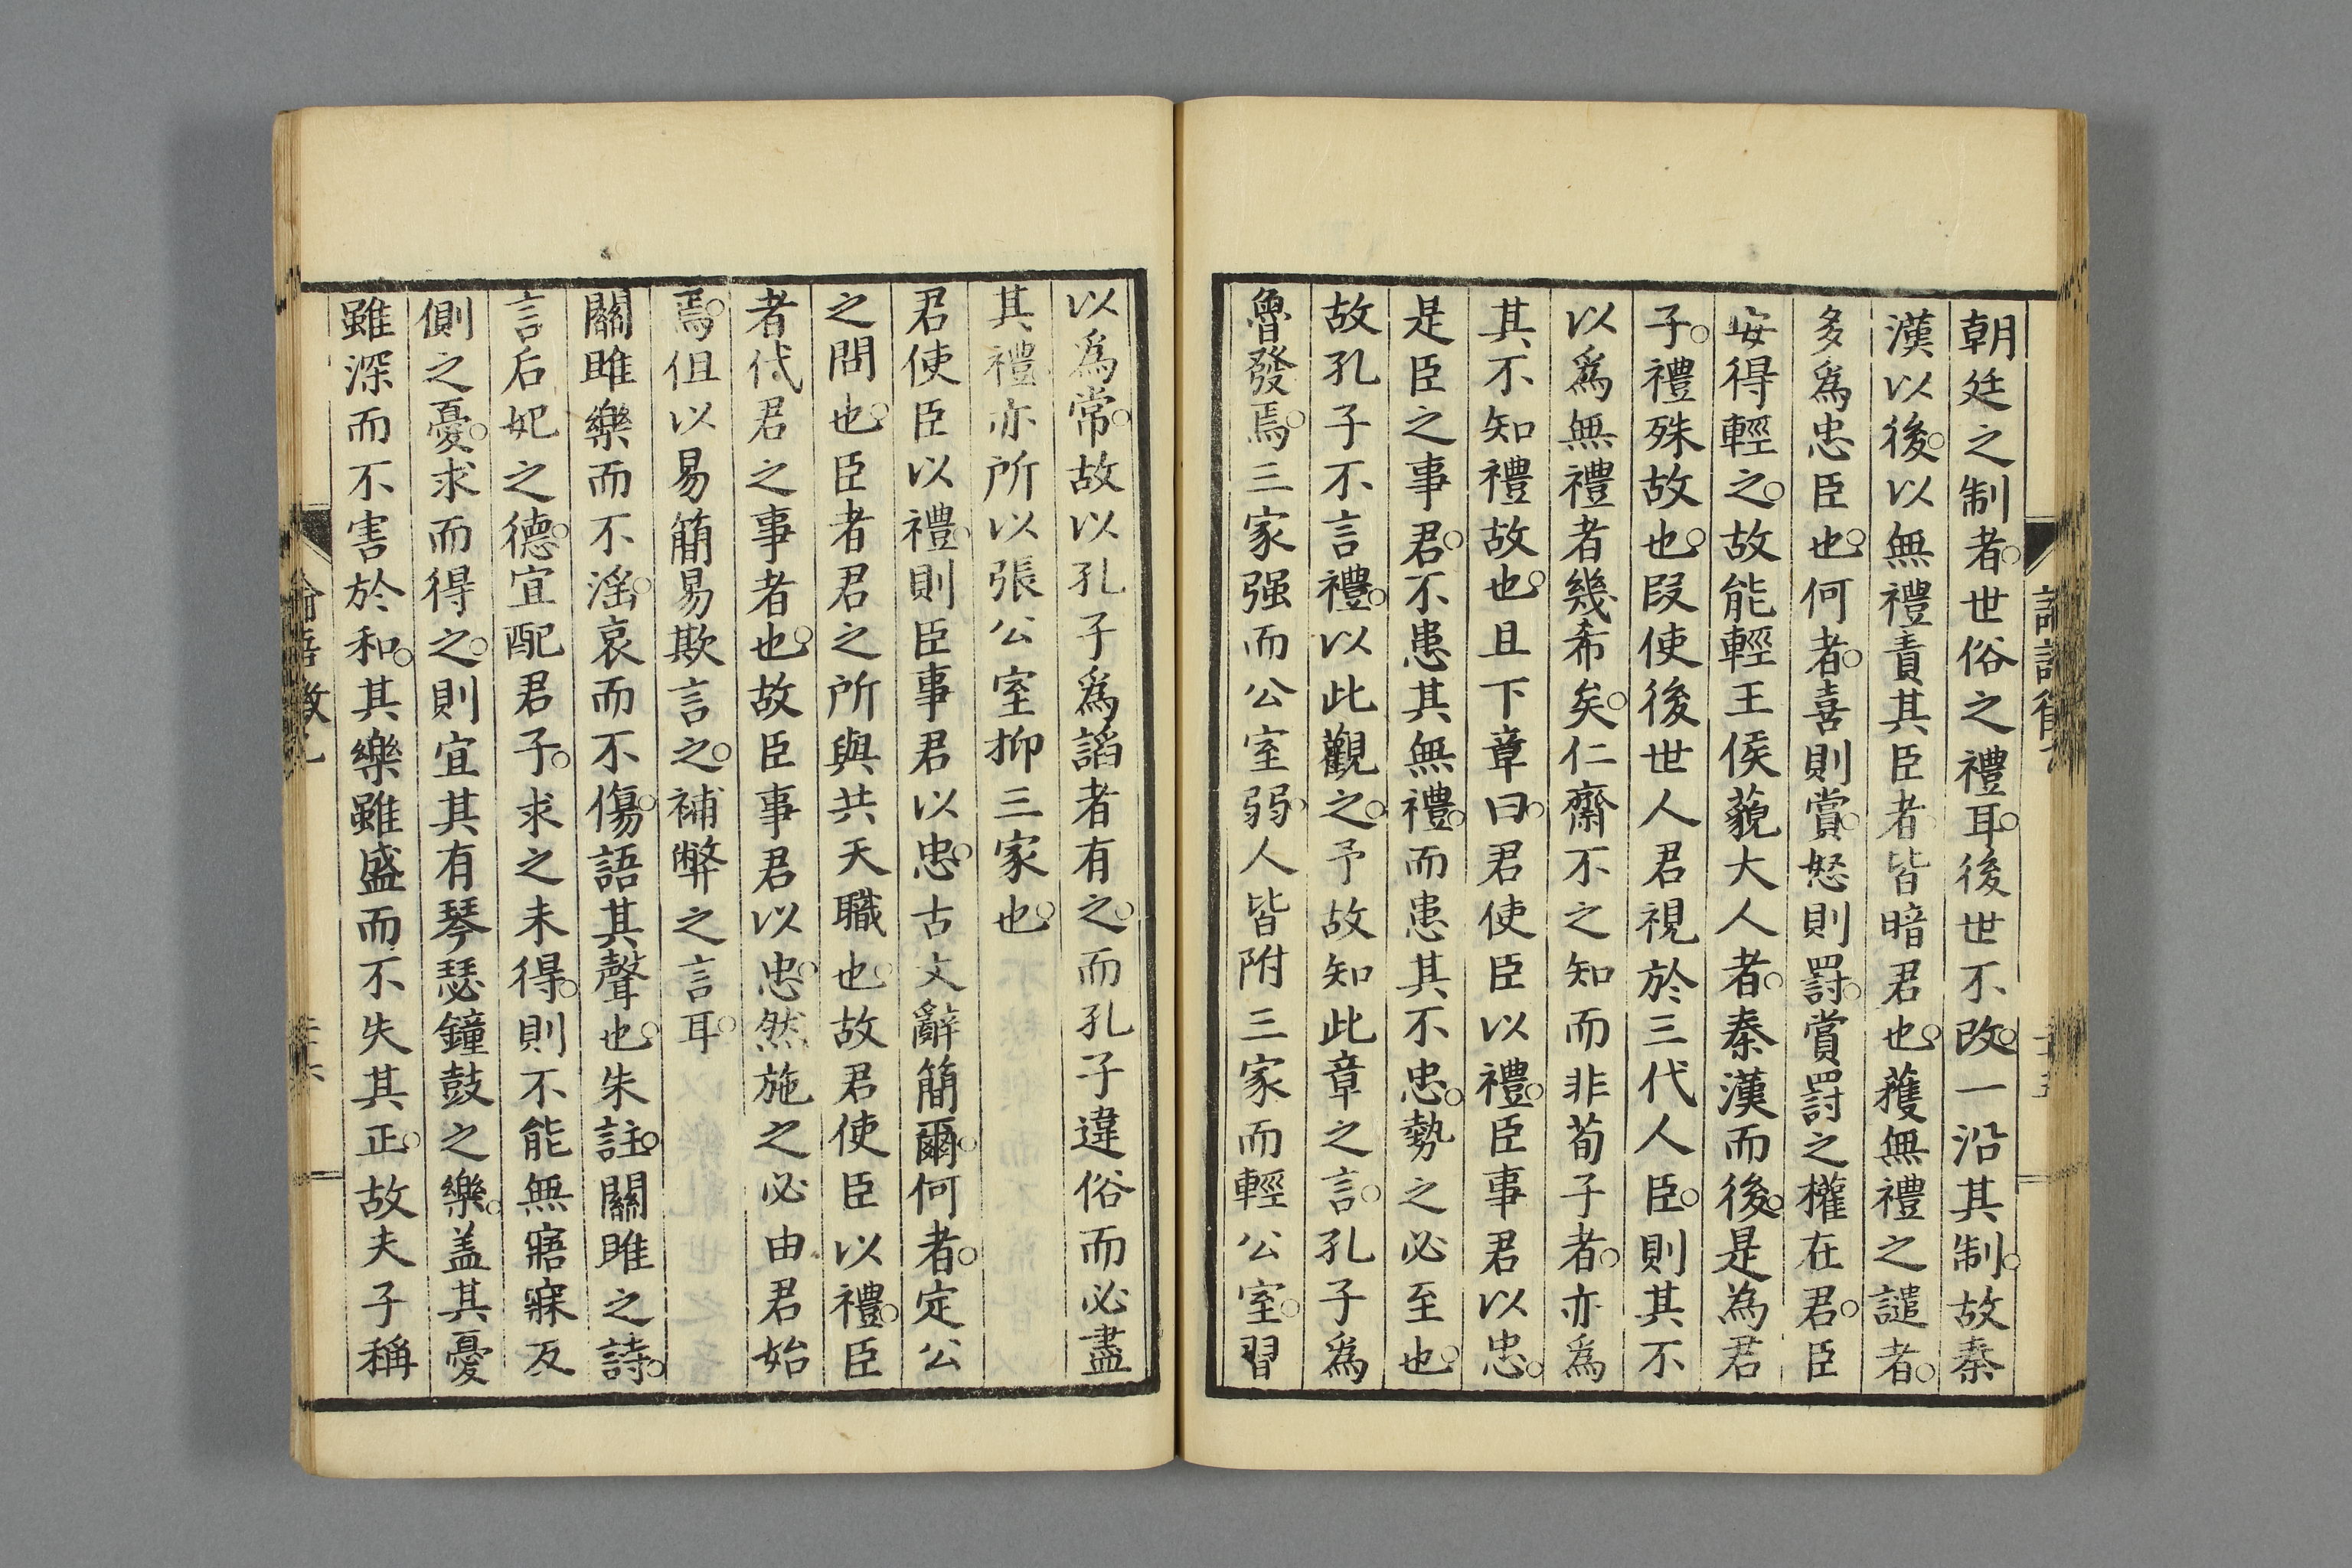 朝廷之制者世俗之禮耳後世不改一沿其制故秦
漢以後以無禮責其臣者皆暗君也蒦無禮之譴者
多爲忠臣也何者喜則賞怒則罰賞罰之權在君臣
安得輕之故能輕王侯藐大人者秦漢而後是為君
子禮殊故也叚使後世人君視於三代人臣則其不
以爲無禮者幾希矣仁齋不之知而非荀子者亦爲
其不知禮故也且下章曰君使臣以禮臣事君以忠
是臣之事君不患其無禮而患其不忠勢之必至也
故孔子不言禮以此觀之予故知此章之言孔子爲
魯發焉三家强而公室弱人皆附三家而輕公室習
以爲常故以孔子爲謟者有之而孔子違俗而必盡
其禮亦所以張公室抑三家也
君使臣以禮則臣事君以忠古文辭簡爾何者定公
之問也臣者君之所與共天職也故君使臣以禮臣
者代君之事者也故臣事君以忠然施之必由君始
焉但以易簡易欺言之補弊之言耳
關雎樂而不滛哀而不傷語其聲也朱註關雎之詩
言后妃之德宜配君子求之未得則不能無寤寐反
側之憂求而得之則宜其有琴瑟鐘鼓之樂盖其憂
雖深而不害於和其樂雖盛而不失其正故夫子稱